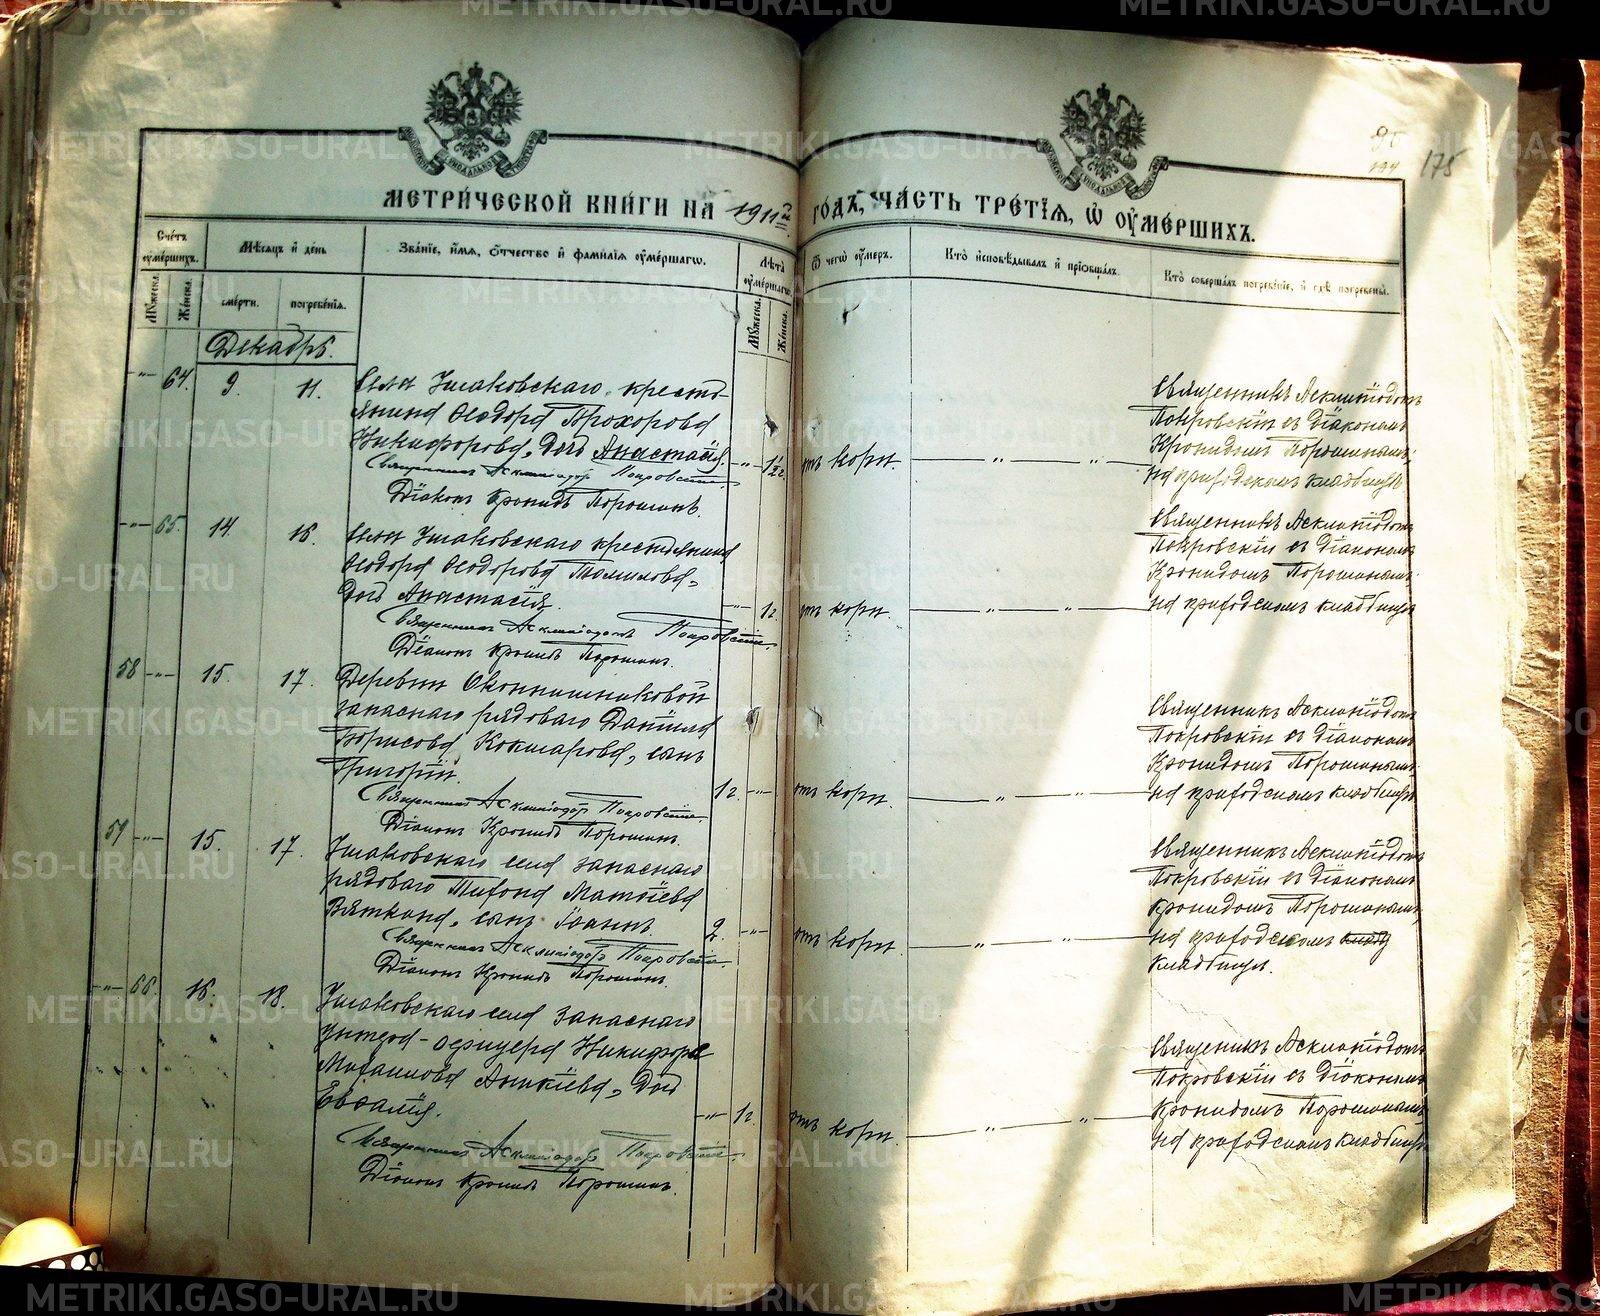 МЕТРИ́ЧЕСКОЙ КНИ́ГИ НА 1911й
ГО́ДЪ, ЧА́СТЬ ТРЕ́ТІЯ, Ѽ ОУ҆МЕ́РШИХЪ.
95
194
175
Сче́тъ оу҆ме́ршихъ.
Мѣ́сяцъ и҆ де́нь
Зва́нїе, и҆́мя, ѻ҆́тчество и҆ фами́лїя оу҆ме́ршагѡ.
Лѣ́та оу҆ме́ршагѡ
Ѿ чегѡ̀ оу҆́меръ.
Кто̀ и҆сповѣ́дывалъ и҆ прїѡбща́лъ.
Кто̀ соверша́лъ погребе́нїе, и҆ гдѣ̀ погребены̀.
Мꙋ́жеска.
Же́нска.
сме́рти.
погребе́нїя.
Мꙋ́жеска.
Же́нска.
Декабрь.
-"- 64. 9. 11. Села Ушаковскаго крестья-
янина Ѳеодора Прохорова
Никифорова, дочь Анастасія.
-"- 1½ г. отъ кори. -"- -"-
Священникъ Асклипіодотъ Покровскій.
Діаконъ Кронидъ Порошинъ.
Священникъ Асклипіодотъ
Покровскій съ Діакономъ
Кронидомъ Порошинымъ;
на приходскомъ кладбищѣ
-"- 65. 14. 16. Села Ушаковскаго крестьянина
Ѳеодора Ѳеодорова Томилова,
дочь Анастасія.
-"- 1 г. отъ кори. -"- -"-
Священникъ Асклипіодотъ Покровскій.
Діаконъ Кронидъ Порошинъ.
Священникъ Асклипіодотъ
Покровскій съ Діакономъ
Кронидомъ Порошинымъ
на приходскомъ кладбищѣ
58 -"- 15. 17. Деревни Оконишниковой
запаснаго рядоваго Даніила
Борисова Кокшарова, сынъ
Григорій.
1 г. -"- отъ кори. -"- -"-
Священникъ Асклипіодотъ Покровскій.
Діаконъ Кронидъ Порошинъ.
Священникъ Асклипіодотъ
Покровскій съ Діакономъ
Кронидомъ Порошинымъ
на приходскомъ кладбищѣ
59 -"- 15. 17. Ушаковскаго села запаснаго
рядоваго Тихона Матѳіева
Вяткина, сынъ Іоаннъ.
2. -"- отъ кори -"- -"-
Священникъ Асклипіодотъ Покровскій.
Діаконъ Кронидъ Порошинъ.
Священникъ Асклипіодотъ
Покровскій съ Діакономъ
Кронидомъ Порошинымъ
на приходскомъ
кладбищѣ.
-"- 66. 16. 18. Ушаковскаго села запаснаго
унтеръ-офицера Никифора
Михаилова Аникіева, дочь
Евѳалія.
-"- 1 г. отъ кори. -"- -"-
Священникъ Асклипіодотъ Покровскій.
Діаконъ Кронидъ Порошинъ.
Священникъ Асклипіодотъ
Покровскій съ Діакономъ
Кронидомъ Порошинымъ
на приходскомъ кладбищѣ
METRIKI.GASO-URAL.RU